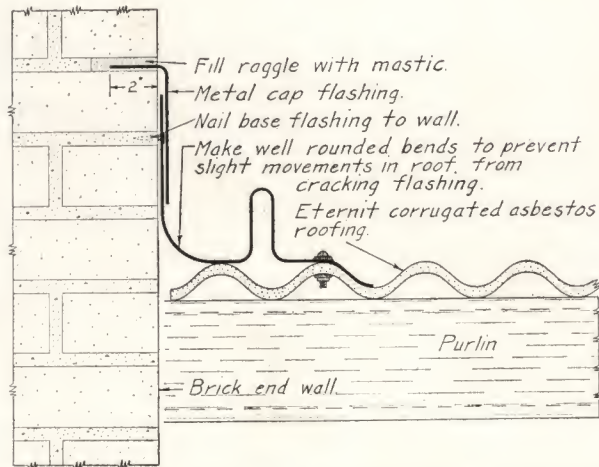 Fill raggle with mastic.
2"
Metal cap flashing.
Nail base flashing to wall.
Make well rounded bends to prevent
slight movements in roof from
cracking flashing.
Eternit corrugated asbestos
roofing.
Purlin
Brick end wall.